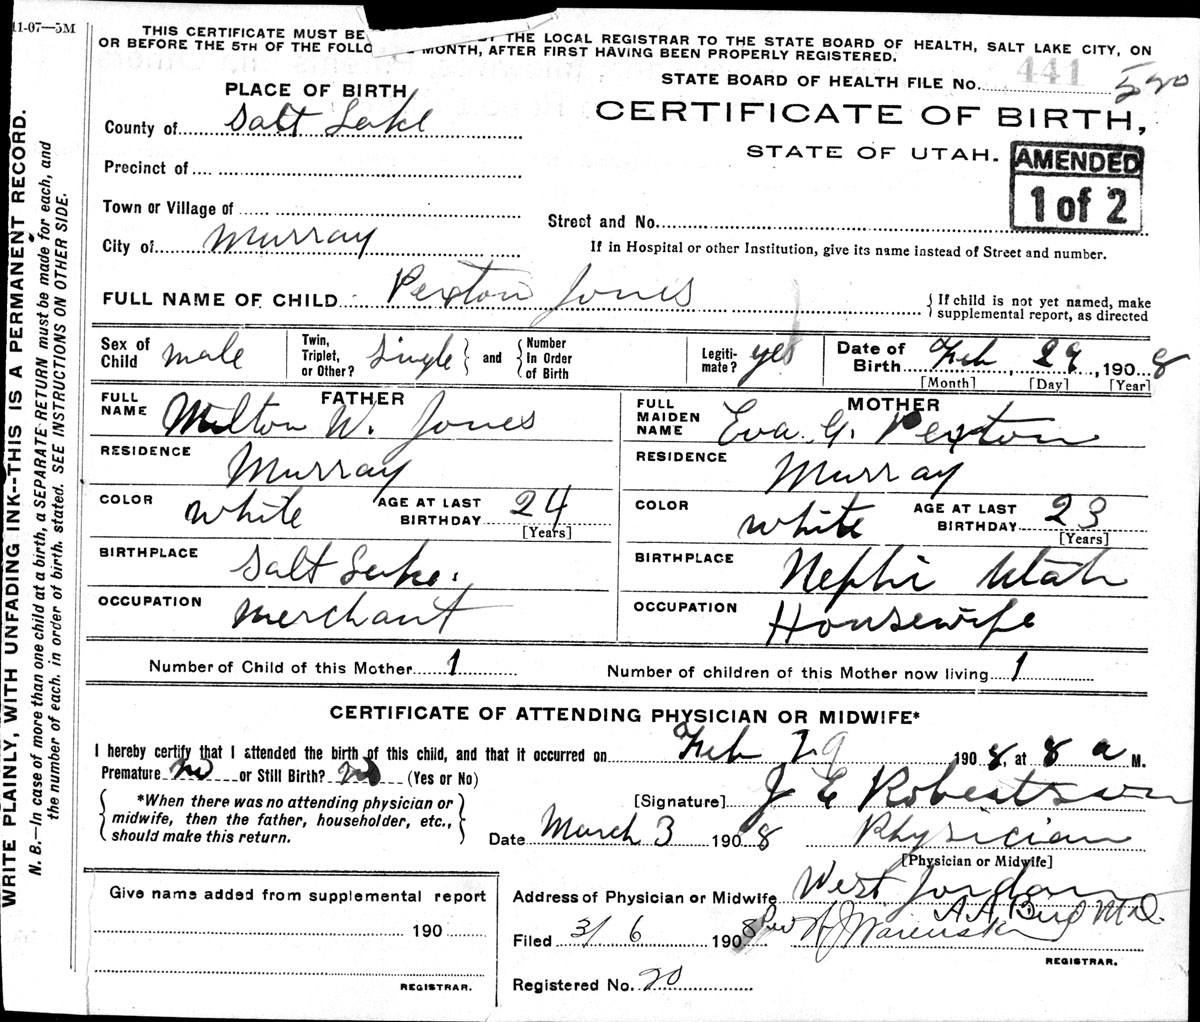 11-07—5M
THIS CERTIFICATE MUST BE THE LOCAL REGISTRAR TO THE STATE BOARD OF HEALTH, SALT LAKE CITY, ON
OR BEFORE THE 5TH OF THE MONTH, AFTER FIRST HAVING BEEN PROPERLY REGISTERED.
STATE BOARD OF HEALTH FILE No. 441 520
CERTIFICATE OF BIRTH,
STATE OF UTAH.
AMENDED
1 of 2
PLACE OF BIRTH
County of Salt Lake
Precinct of
Town or Village of
City of Murray
Street and No.
If in Hospital or other Institution, give its name instead of Street and number.
FULL NAME OF CHILD Pexton Jones
{ If child is not yet named, make
supplemental report, as directed
Sex of Child male
Twin, Triplet, or Other? Single } and { Number In Order of Birth
Legiti-mate? yes
Date of Birth Feb, 29, 1908
[Month] [Day] [Year]
FATHER
FULL NAME Milton W. Jones
RESIDENCE Murray
COLOR white AGE AT LAST BIRTHDAY 24
[Years]
BIRTHPLACE Salt Lake.
OCCUPATION merchant
MOTHER
FULL MAIDEN NAME Eva G. Pexton
RESIDENCE Murray
COLOR white AGE AT LAST BIRTHDAY 23
[Years]
BIRTHPLACE Nephi Utah
OCCUPATION Housewife
Number of Child of this Mother 1
Number of children of this Mother now living 1
CERTIFICATE OF ATTENDING PHYSICIAN OR MIDWIFE*
I hereby certify that I attended the birth of this child, and that it occurred on Feb 29 1908, at 8 a M.
Premature no or Still Birth? no (Yes or No)
{ *When there was no attending physician or
midwife, then the father, householder, etc.,
should make this return. }
[Signature] J E Robertson
Date March 3 1908 Physician
[Physician or Midwife]
Address of Physician or Midwife West Jordan
A A Bird M.D.
Filed 3/6 1908
REGISTRAR.
Registered No. 20
Give name added from supplemental report
190
REGISTRAR.
WRITE PLAINLY, WITH UNFADING INK--THIS IS A PERMANENT RECORD.
N. B.—In case of more than one child at a birth, a SEPARATE RETURN must be made for each, and
the number of each, in order of birth, stated. SEE INSTRUCTIONS ON OTHER SIDE.